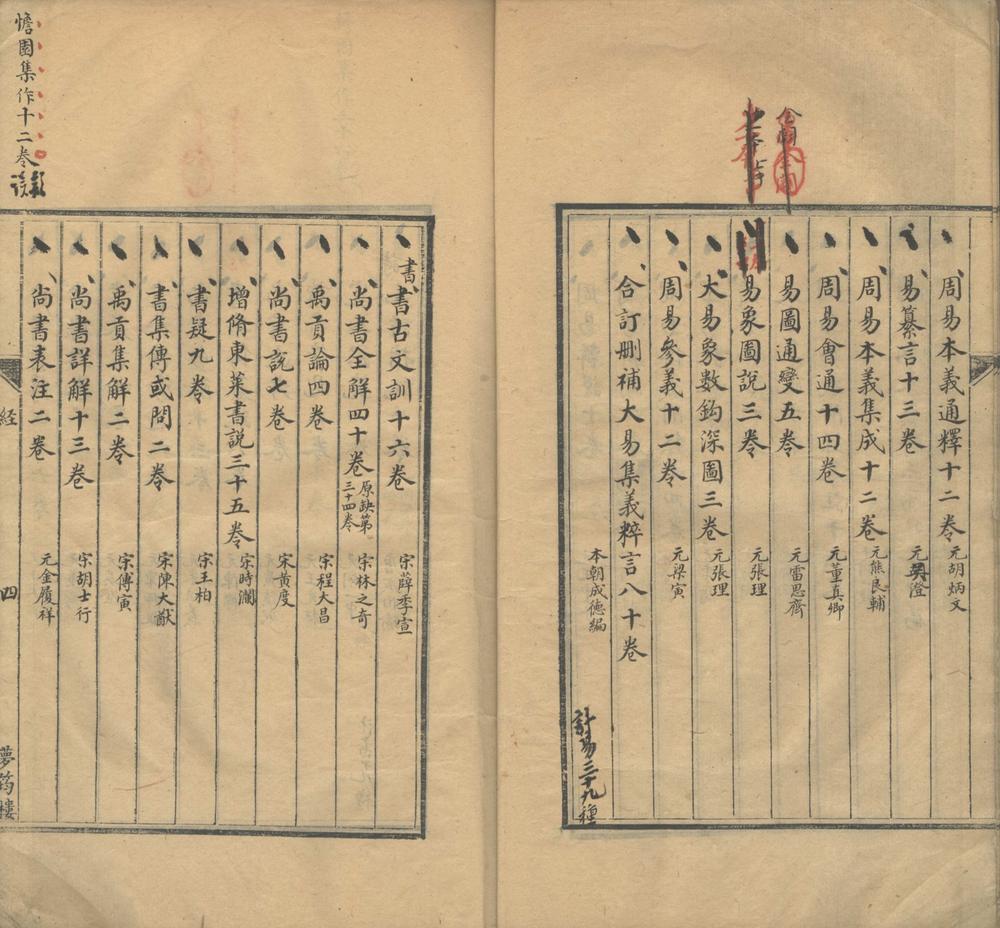 周易本義通釋十二卷 元胡炳文
易纂言十三卷 元吳澄
周易本義集成十二卷 元熊良輔
周易會通十四卷 元董真卿
易圖通變五卷 元雷思齊
易象圖說三卷 元張理
大易象數鈎深圖三卷 元張理
周易參義十二卷 元梁寅
合訂刪補大易集義粹言八十卷
本朝成德編
計易三十九種
書
書古文訓十六卷 宋薛季宣
尚書全解四十卷 原缺第三十四卷 宋林之奇
禹貢論四卷 宋程大昌
尚書說七卷 宋黃度
增脩東萊書說三十五卷 宋時瀾
書疑九卷 宋王柏
書集傳或問二卷 宋陳大猷
禹貢集解二卷 宋傅寅
尚書詳解十三卷 宋胡士行
尚書表注二卷 元金履祥
憺園集作十二卷
経
四
夢筠樓